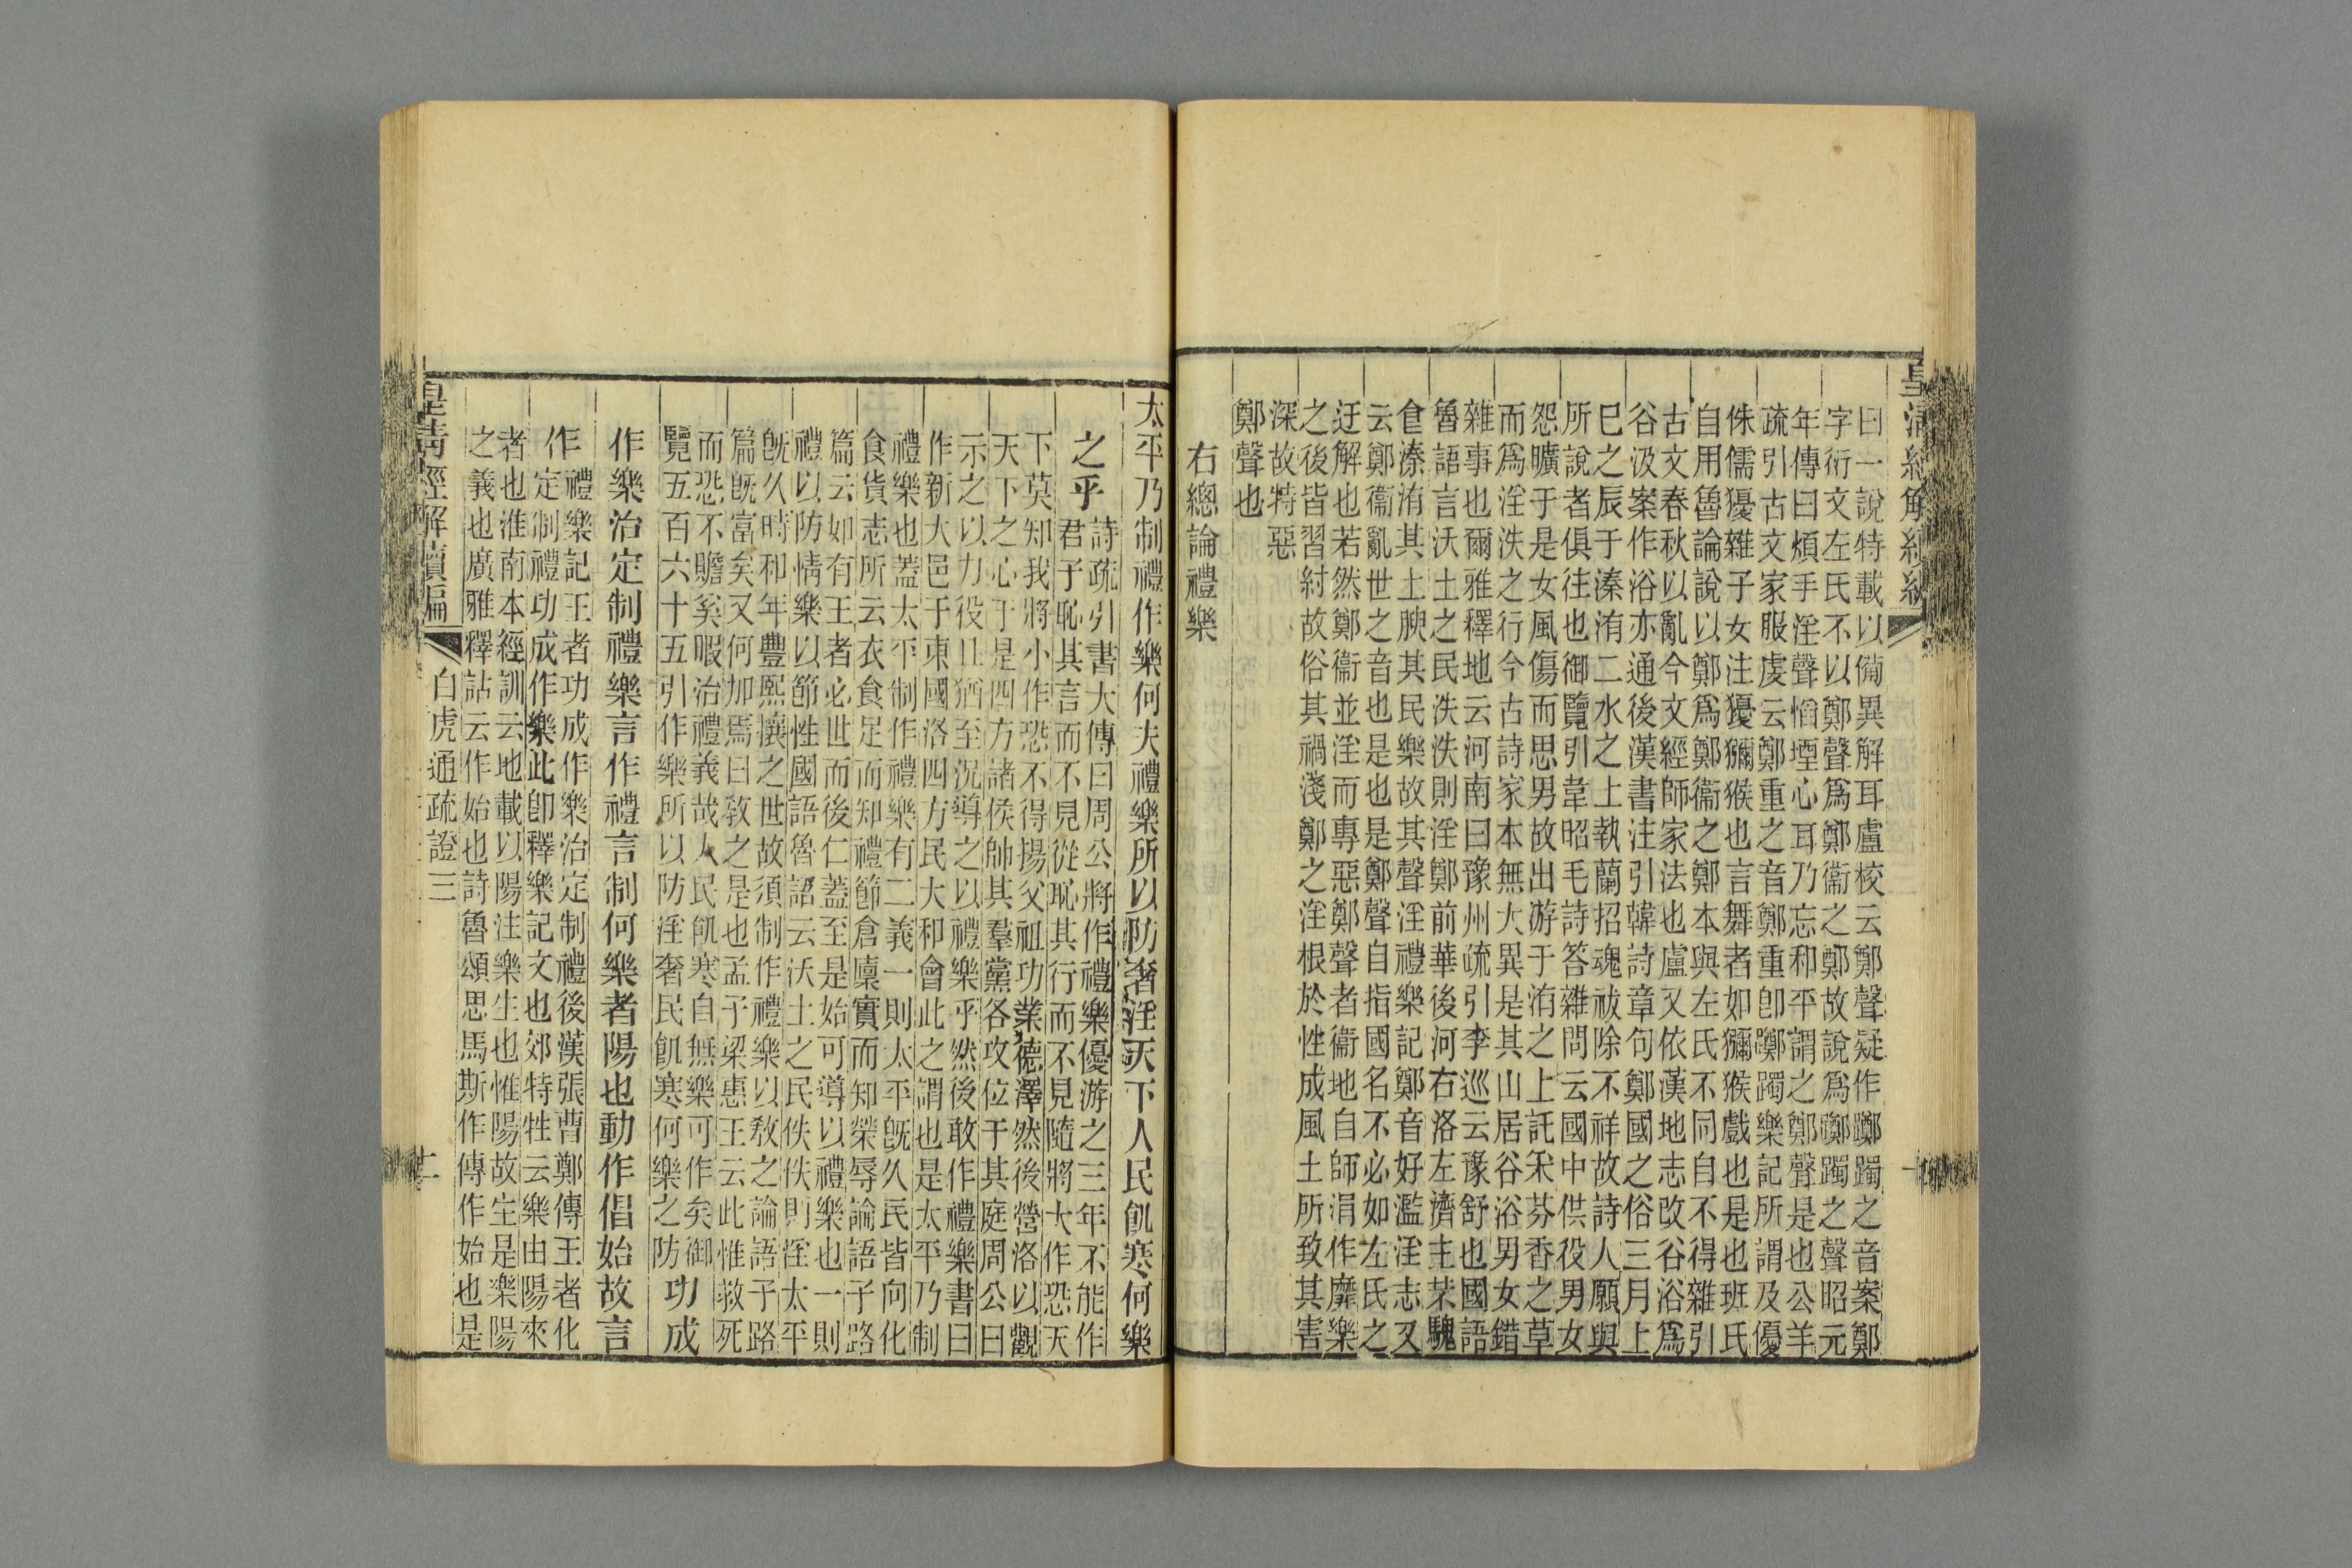 皇清經解續編
曰一說特載以備異解耳盧校云鄭聲疑作躑躅之音案鄭
字衍文左氏不以鄭聲爲鄭衞之鄭故說爲躑躅之聲昭元
年傳曰煩手淫聲慆堙心耳乃忘和平謂之鄭聲是也公羊
疏引古文家服虔云鄭重之音鄭重卽躑躅樂記所謂及優
侏儒獶雜子女注獶獼猴也言舞者如獼猴戲也是也班氏
自用魯論說以鄭爲鄭衞之鄭本與左氏不同自不得雜引
古文春秋以亂今文經師家法也盧又依漢地志改谷浴爲
谷汲案作浴亦通後漢書注引韓詩章句鄭國之俗三月上
巳之辰于溱洧二水之上執蘭招魂祓除不祥故詩人願與
所說者俱往也御覽引韋昭毛詩答雜問云國中供役男女
怨曠于是女風傷而思男故出游于洧之上託采芬香之草
而爲淫泆之行今古詩家本無大異是其山居谷浴男女錯
雜事也爾雅釋地云河南曰豫州疏引李巡云豫舒也國語
魯語言沃土之民泆泆則淫鄭前華後河右洛左濟主芣騩
食溱洧其土腴其民樂故其聲淫禮樂記鄭音好濫淫志又
云鄭衞亂世之音也是也是鄭聲自指國名不必如左氏之
迂解也若然鄭衞並淫而專惡鄭聲者衞地自師涓作靡樂
之後皆習紂故俗其禍淺鄭之淫根於性成風土所致其害
深故特惡
鄭聲也
右總論禮樂
太平乃制禮作樂何夫禮樂所以防奢淫天下人民飢寒何樂
之乎
詩疏引書大傳曰周公將作禮樂優游之三年不能作
君子恥其言而不見從恥其行而不見隨將大作恐天
下莫知我將小作恐不得揚父祖功業德澤然後營洛以觀
天下之心于是四方諸侯帥其羣黨各攻位于其庭周公曰
示之以力役且猶至況導之以禮樂乎然後敢作禮樂書曰
作新大邑于東國洛四方民大和會此之謂也是太平乃制
禮樂也蓋太平制作禮樂有二義一則太平旣久民皆向化
食貨志所云衣食足而知禮節倉廩實而知榮辱論語子路
篇云如有王者必世而後仁蓋至是始可導以禮樂也一則
禮以防情樂以節性國語魯語云沃土之民佚佚則淫太平
旣久時和年豐熙瀼之世故須制作禮樂以敎之論語子路
篇旣富矣又何加焉曰敎之是也孟子梁惠王云此惟救死
而恐不贍奚暇治禮義哉人民飢寒自無樂可作矣御
覽五百六十五引作樂所以防淫奢民飢寒何樂之防
功成
作樂治定制禮樂言作禮言制何樂者陽也動作倡始故言
作
禮樂記王者功成作樂治定制禮後漢張曹鄭傳王者化
定制禮功成作樂此卽釋樂記文也郊特牲云樂由陽來
者也淮南本經訓云地載以陽注樂生也惟陽故生是樂陽
之義也廣雅釋詁云作始也詩魯頌思馬斯作傳作始也是
皇清經解續編
白虎通疏證三
二